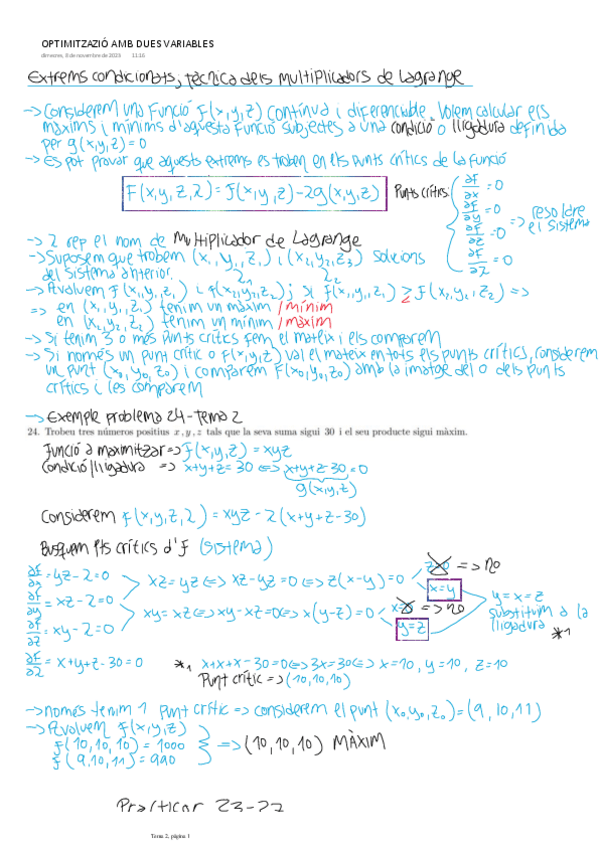 OPTIMITZAZIÓ AMB DUES VARIABLES
dimecres, 8 de novembre de 2023 11:16
Extrems condicionats; tècnica dels multiplicadors de Lagrange
-> Considerem una Funció f(x,y,z) contínua i diferenciable. Volem calcular els
màxims i mínims d'aquesta Funció subjectes a una condició o lligadura definida
per g(x,y,z)=0
-> Es pot provar que aquests extrems es troben en els punts crítics de la funció
F(x,y,z,λ) = f(x,y,z) - λg(x,y,z)
Punts crítics:
∂F/∂x = 0
∂F/∂y = 0
∂F/∂z = 0
∂F/∂λ = 0
=> resoldre el sistema
-> λ rep el nom de Multiplicador de Lagrange
-> Suposem que trobem (x₁,y₁,z₁) i (x₂,y₂,z₂) solucions
λ₁ λ₂
del sistema anterior.
-> Avaluem f(x₁,y₁,z₁) i f(x₂,y₂,z₂); si f(x₁,y₁,z₁) ≥ f(x₂,y₂,z₂) =>
=> en (x₁,y₁,z₁) tenim un màxim /mínim
en (x₂,y₂,z₂) tenim un mínim /màxim
-> Si tenim 3 o més punts crítics fem el mateix i els comparem
-> Si només un punt crític o F(x,y,z) val el mateix en tots els punts crítics, considerem
un punt (x₀,y₀,z₀) i comparem F(x₀,y₀,z₀) amb la imatge del o dels punts
crítics i les comparem
-> Exemple problema 24 - tema 2
24. Trobeu tres números positius x, y, z tals que la seva suma sigui 30 i el seu producte sigui màxim.
Funció a maximitzar => f(x,y,z) = xyz
Condició/lligadura => x+y+z=30 <=> x+y+z-30=0
g(x,y,z)
Considerem F(x,y,z,λ) = xyz - λ(x+y+z-30)
Busquem pts crítics d'F (sistema)
∂F/∂x = yz-λ=0
∂F/∂y = xz-λ=0
∂F/∂z = xy-λ=0
xz=yz <=> xz-yz=0 <=> z(x-y)=0
z=0 => no
x=y
xy=xz <=> xy-xz=0 <=> x(y-z)=0
x=0 => no
y=z
y=x=z
substituim a la
lligadura
*1
∂F/∂λ = x+y+z-30=0
*1 x+x+x-30=0 <=> 3x=30 <=> x=10, y=10, z=10
Punt crític => (10,10,10)
-> només tenim 1 punt crític => considerem el punt (x₀,y₀,z₀)=(9,10,11)
-> Avaluem f(x,y,z)
f(10,10,10) = 1000
f(9,10,11) = 990
=> (10,10,10) MÀXIM
Practicar 23-27
Tema 2, página 1